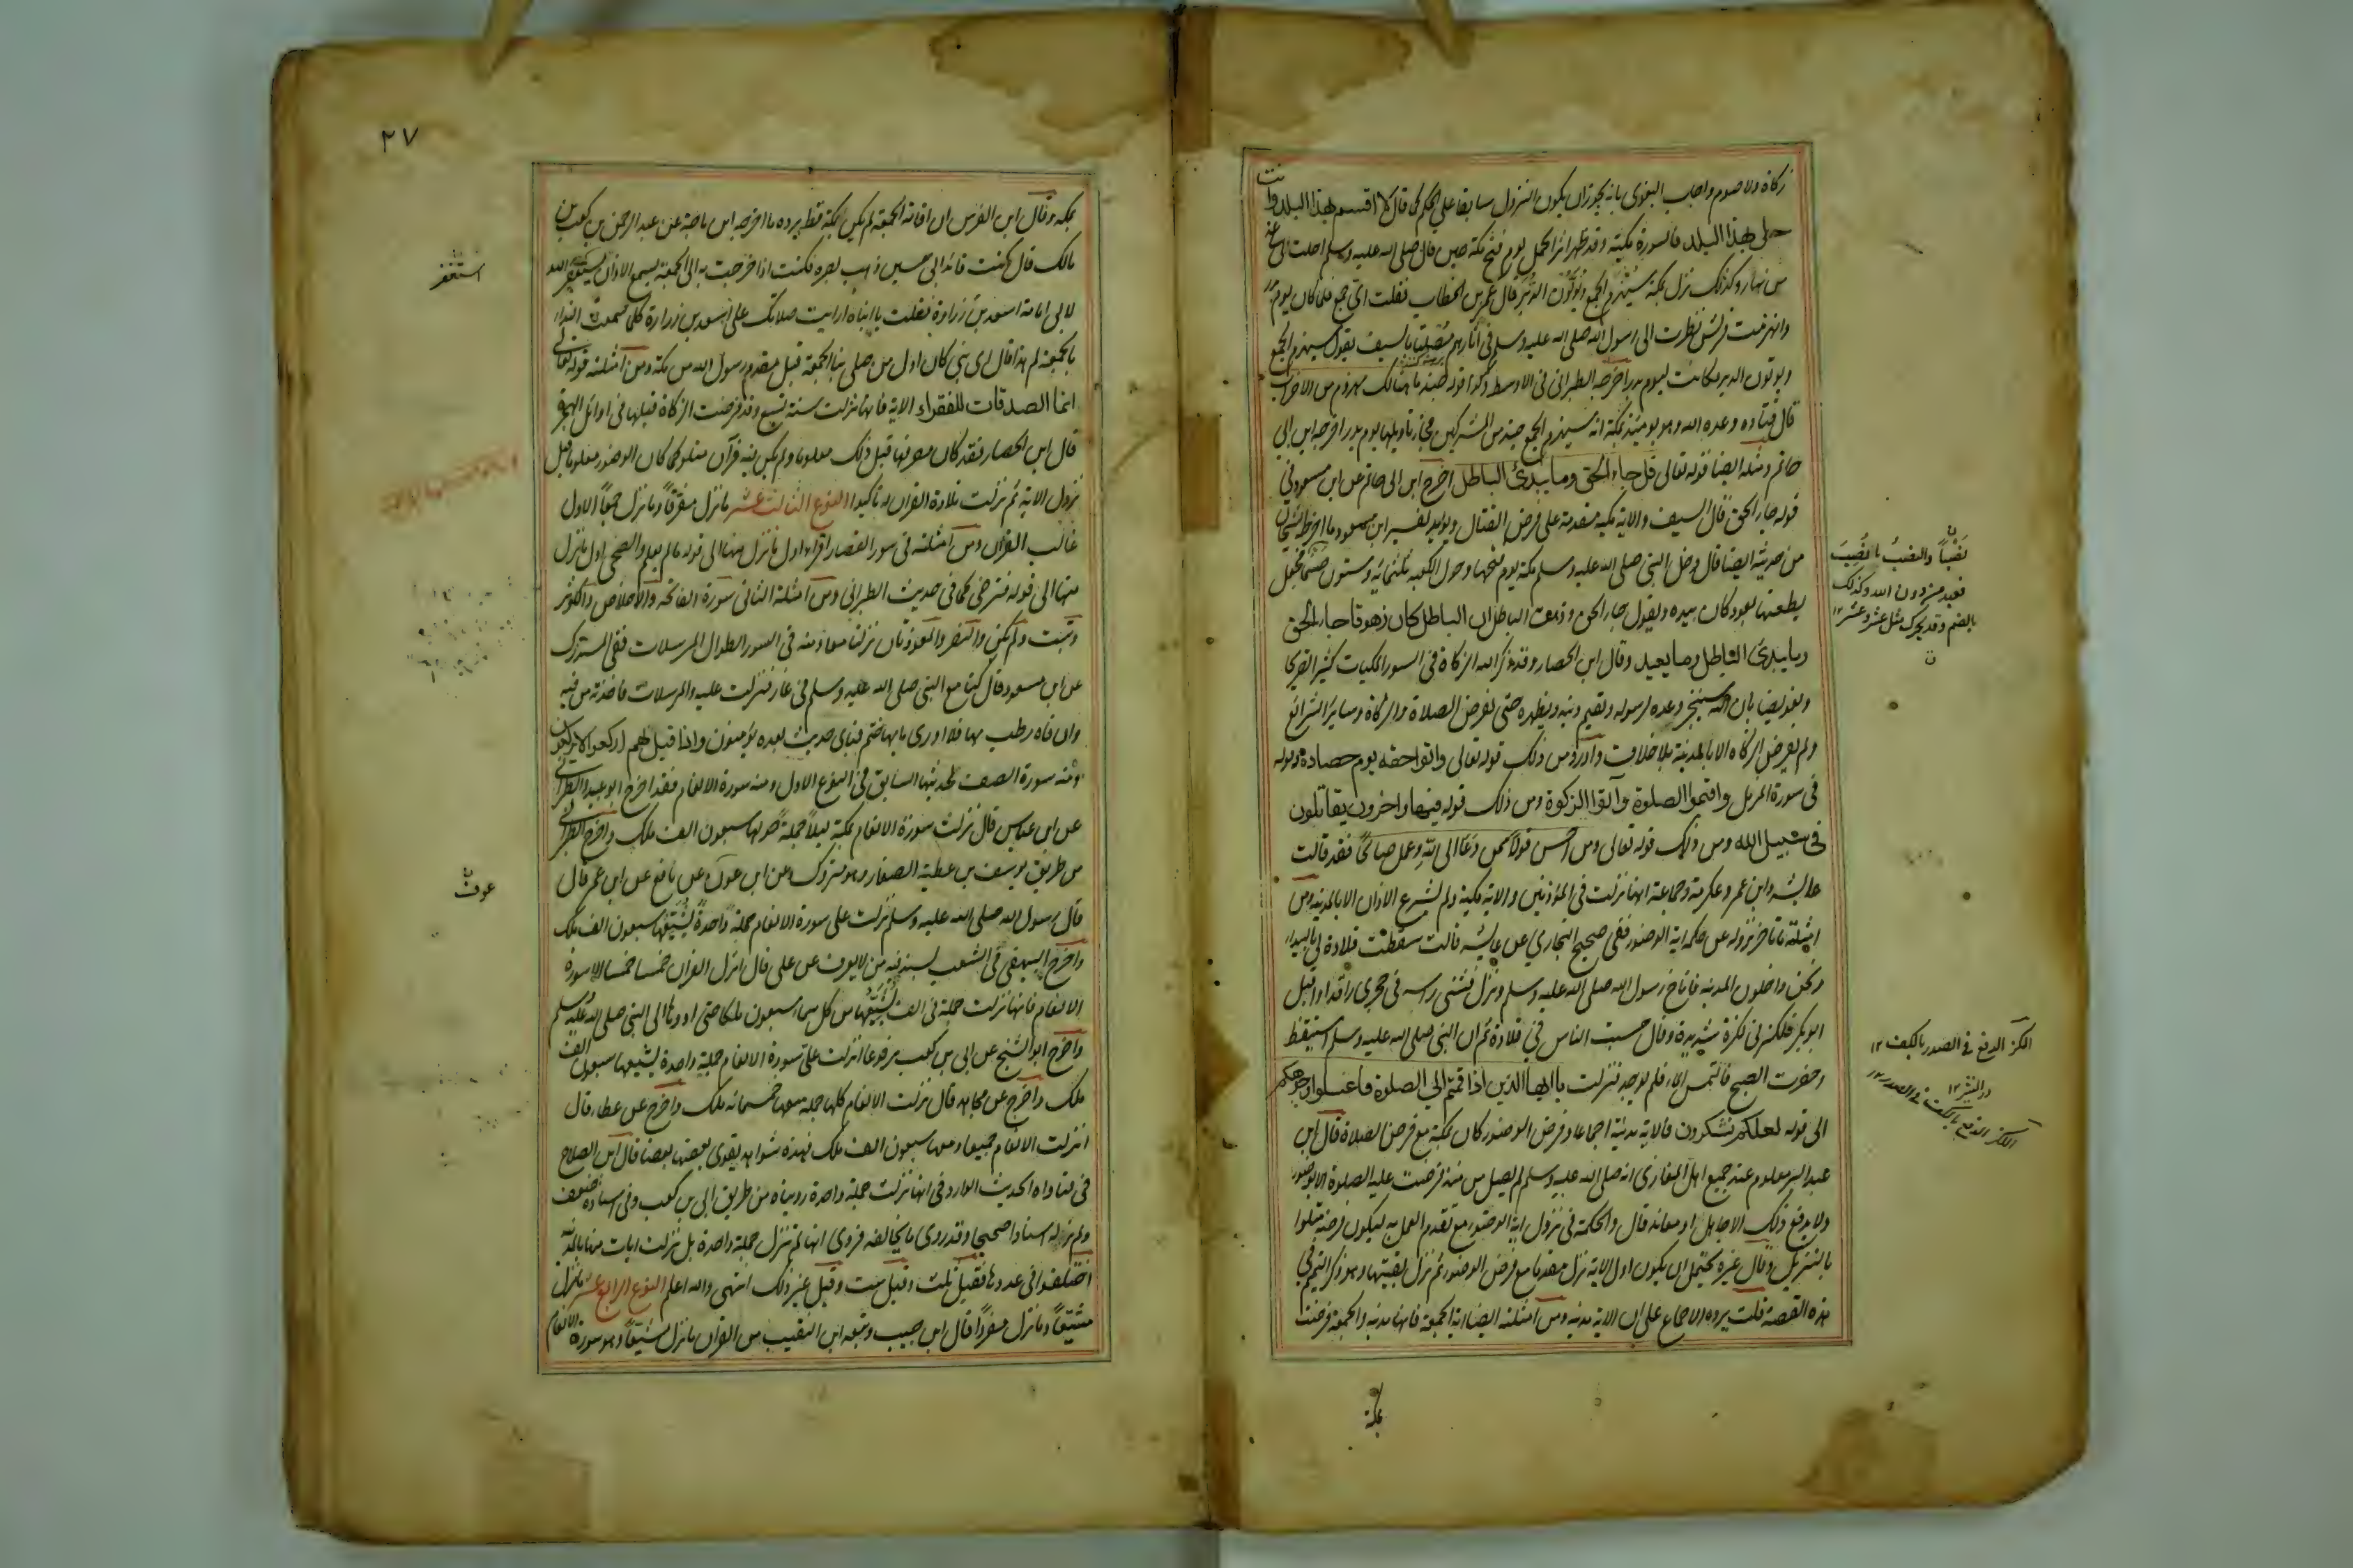 زكاة ولا صوم واجاب البغوي بانه يجوز ان يكون النزول سابقا على الحكم كما قال لا اقسم بهذا البلد وانت
حل بهذا البلد فالسورة مكية وقد ظهر اثر الحل يوم فتح مكة حين قال صلى الله عليه وسلم احلت لى ساعة
من نهار وكذلك نزل بمكة سيهزم الجمع ويولون الدبر قال عمر بن الخطاب فقلت اي جمع فلما كان يوم بدر
وانهزمت قريش نظرت الى رسول الله صلى الله عليه وسلم فى آثارهم مصلتا بالسيف يقول سيهزم الجمع
ويولون الدبر فكانت ليوم بدر اخرجه الطبراني فى الاوسط وكذا قوله جند ما هنالك مهزوم من الاحزاب
قال قتادة وعده الله وهو يومئذ بمكة انه سيهزم الجمع جند من المشركين فجاء تاويلها يوم بدر اخرجه ابن ابي
حاتم ومثله ايضا قوله تعالى قل جاء الحق وما يبدئ الباطل اخرج ابن ابي حاتم عن ابن مسعود في
قوله جاء الحق قال السيف والاية مكية متقدمة على فرض القتال ويؤيد تفسير ابن مسعود ما اخرجه الشيخان
من حديثه ايضا قال دخل النبي صلى الله عليه وسلم مكة يوم فتحها وحول الكعبة ثلثمائة وستون صنما فجعل
يطعنها بعود كان بيده ويقول جاء الحق وزهق الباطل ان الباطل كان زهوقا جاء الحق
وما يبدئ الباطل وما يعيد وقال ابن الحصار وقد ذكر الله الزكاة في السور المكيات كثيرا تصريحا
وتعريضا بان الله سينجز وعده لرسوله ويقيم دينه ويظهره حتى يفرض الصلاة والزكاة وسائر الشرائع
ولم يفرض الزكاة الا بالمدينة بلا خلاف واورد من ذلك قوله تعالى واتوا حقه يوم حصاده وقوله
في سورة المزمل واقيموا الصلوة وآتوا الزكوة ومن ذلك قوله فيها واخرون يقاتلون
في سبيل الله ومن ذلك قوله تعالى ومن احسن قولا ممن دعا الى الله وعمل صالحا فقد قالت
عايشة وابن عمر وعكرمة وجماعة انها نزلت في المؤذنين والاية مكية ولم يشرع الاذان الا بالمدينة ومن
امثلة ما تاخر نزوله عن حكمه اية الوضوء ففي صحيح البخاري عن عايشة قالت سقطت قلادة لي بالبيداء
ونحن داخلون المدينة فاناخ رسول الله صلى الله عليه وسلم ونزل فثنى راسه في حجري راقدا واقبل
ابوبكر فلكزني لكزة شديدة وقال حبست الناس في قلادة ثم ان النبي صلى الله عليه وسلم استيقظ
وحضرت الصبح فالتمس الماء فلم يوجد فنزلت يا ايها الذين اذا قمتم الى الصلوة فاغسلوا وجوهكم
الى قوله لعلكم تشكرون فالاية مدنية اجماعا وفرض الوضوء كان بمكة مع فرض الصلاة قال ابن
عبد البر معلوم عند جميع اهل المغازى انه صلى الله عليه وسلم لم يصل منذ فرضت عليه الصلوة الا بوضوء
ولا يدفع ذلك الا جاهل او معاند قال والحكمة في نزول اية الوضوء مع تقدم العمل به ليكون فرضه متلوا
بالتنزيل وقال غيره يحتمل ان يكون اول الاية نزل مقدما مع فرض الوضوء ثم نزل بقيتها وهو ذكر التيمم في
هذه القصة قلت يرده الاجماع على ان الاية مدنية ومن امثلته ايضا اية الجمعة فانها مدنية والجمعة فرضت
بمكة
نصبا والنصب ما نصب
فعبد من دون الله وكذلك
بالضم وقد يحرك مثل عشر وعشر ١٢
اللكز الدفع في الصدر بالكف ١٢
٢٧
بمكة وقال ابن الفرس ان اقامة الجمعة لم يكن بمكة قط يرده ما اخرجه ابن ماجة عن عبد الرحمن بن كعب بن
مالك قال كنت قائد ابي حسين ذهب بصره فكنت اذا خرجت به الى الجمعة يسمع الاذان يستغفر الله
لابي امامة اسعد بن زرارة فقلت يا ابتاه ارايت صلاتك على اسعد بن زرارة كلما سمعت النداء
بالجمعة لم هذا قال اي بني كان اول من صلى بنا الجمعة قبل مقدم رسول الله من مكة ومن امثلته قوله تعالى
انما الصدقات للفقراء الاية فانها نزلت سنة تسع وقد فرضت الزكاة قبلها في اوائل الهجرة
قال ابن الحصار فقد كان مصرفها قبل ذلك معلوما ولم يكن فيه قرآن متلو كما كان الوضوء معلوما قبل
نزول الاية ثم نزلت تلاوة القران به تاكيدا النوع الثالث عشر ما نزل مفرقا وما نزل جمعا الاول
غالب القران ومن امثلته في سور القصار اقرا اول ما نزل منها الى قوله ما لم يعلم والضحى اول ما نزل
منها الى قوله فترضى كما في حديث الطبراني ومن امثلة الثاني سورة الفاتحة والاخلاص والكوثر
وتبت ولم يكن والنصر والمعوذتان نزلتا معا ومنه في السور الطوال المرسلات ففي المستدرك
عن ابن مسعود قال كنا مع النبي صلى الله عليه وسلم في غار فنزلت عليه والمرسلات فاخذته من فيه
وان فاه رطب بها فلا ادري بايها ختم فباي حديث بعده يؤمنون واذا قيل لهم اركعوا لا يركعون
ومنه سورة الصف لحديثها السابق في النوع الاول ومنه سورة الانعام فقد اخرج ابو عبيد والطبراني
عن ابن عباس قال نزلت سورة الانعام بمكة ليلا جملة حولها سبعون الف ملك واخرج الطبراني
من طريق يوسف بن عطية الصفار وهو متروك عن ابن عون عن نافع عن ابن عمر قال
قال رسول الله صلى الله عليه وسلم نزلت علي سورة الانعام جملة واحدة يشيعها سبعون الف ملك
واخرج البيهقي في الشعب بسند فيه من لا يعرف عن علي قال انزل القران خمسا خمسا الا سورة
الانعام فانها نزلت جملة في الف يشيعها من كل سماء سبعون ملكا حتى ادوها الى النبي صلى الله عليه وسلم
واخرج ابو الشيخ عن ابي بن كعب مرفوعا انزلت علي سورة الانعام جملة واحدة يشيعها سبعون الف
ملك واخرج عن مجاهد قال نزلت الانعام كلها جملة معها خمسمائة ملك واخرج عن عطاء قال
انزلت الانعام جميعا ومعها سبعون الف ملك فهذه شواهد يقوي بعضها بعضا قال ابن الصلاح
في فتاواه الحديث الوارد في انها نزلت جملة واحدة رويناه من طريق ابي بن كعب وفي اسناده ضعف
ولم نر له اسنادا صحيحا وقد روي ما يخالفه فروي انها لم تنزل جملة واحدة بل نزلت ايات منها بالمدينة
اختلفوا في عددها فقيل ثلث وقيل ست وقيل غير ذلك انتهى والله اعلم النوع الرابع عشر ما نزل
مشيعا وما نزل مفردا قال ابن حبيب وتبعه ابن النقيب من القران ما نزل مشيعا وهو سورة الانعام
استغفر
عوف